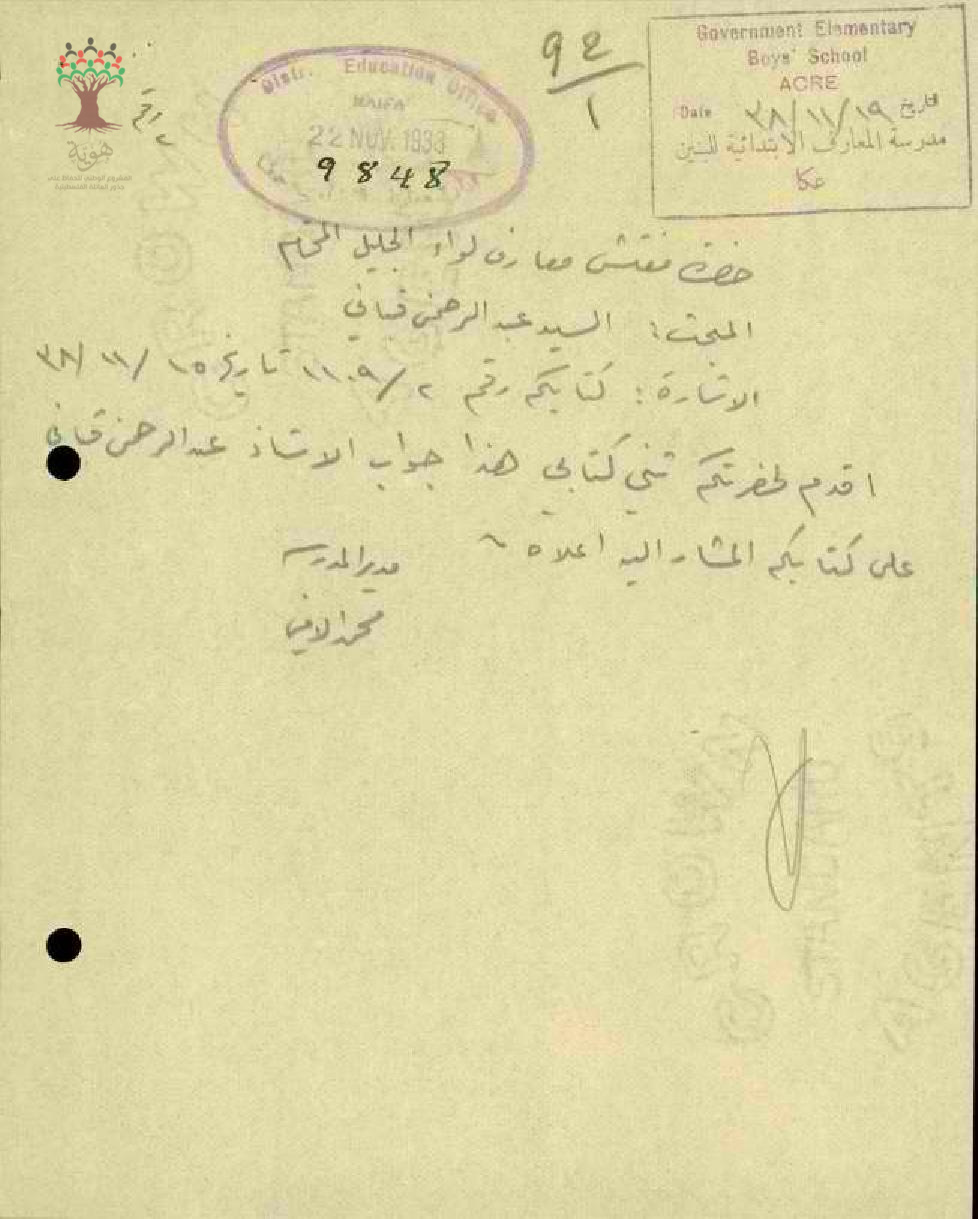 Government Elementary
Boys' School
ACRE
Date ٣٨/١١/١٩ تاريخ
مدرسة المعارف الابتدائية للبنين
عكا
٩٢
١
Distr. Education Office
HAIFA
22 NOV. 1938
9848
هوية
المشروع الوطني للحفاظ على
جذور العائلة الفلسطينية
حضرة مفتش معارف لواء الجليل المحترم
المبحث: السيد عبد الرحمن قباني
الاشارة: كتابكم رقم ١١٠٩/٢ تاريخ ١٥/١١/٣٨
اقدم لحضرتكم ثني كتابي هذا جواب الاستاذ عبد الرحمن قباني
على كتابكم المشار اليه اعلاه
مدير المدرسة